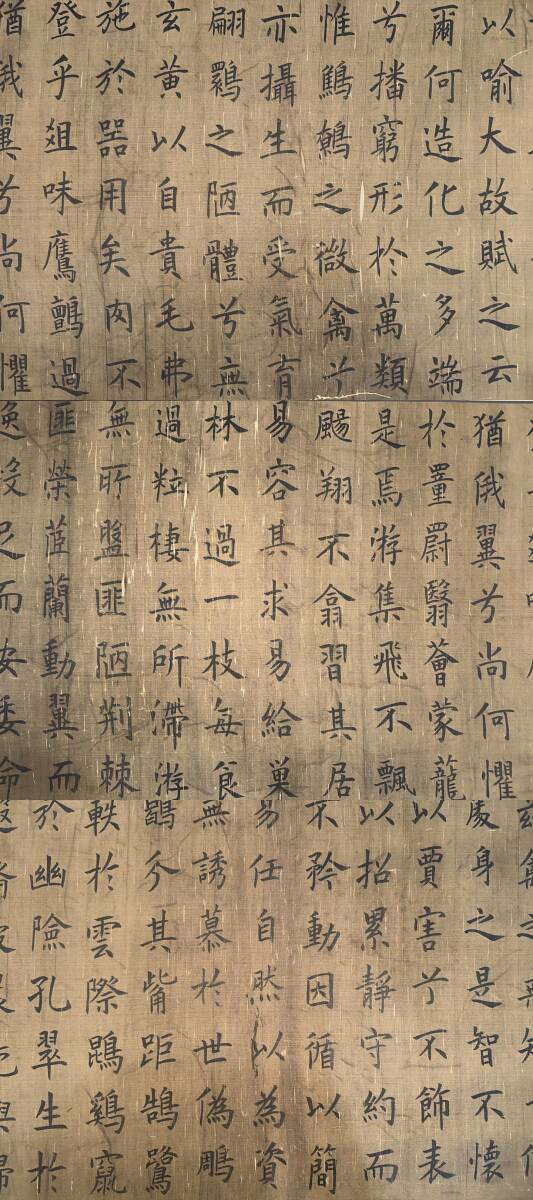 以喻大故賦之云
爾何造化之多端
兮播窮形於萬類
惟鷦鷯之微禽兮
亦攝生而受氣育
翩之陋體兮無
玄黃以自貴毛弗
施於器用矣肉不
登乎俎味鷹鸇過
猶俄翼兮尚何懼
猶俄翼兮尚何懼
於罿罻翳薈蒙蘢
是焉游集飛不飄
颺翔不翕習其居
易容其求易給巢
林不過一枝每食
過粒棲無所滯游
無所盤匪陋荊棘
匪榮茝蘭動翼而
逸投足而安委命
處身之是智不懷
以賈害兮不飾表
以招累靜守約而
不矜動因循以簡
易任自然以為資
無誘慕於世偽鵰
鶡介其觜距鵠鷺
軼於雲際鵾鷄竄
於幽險孔翠生於